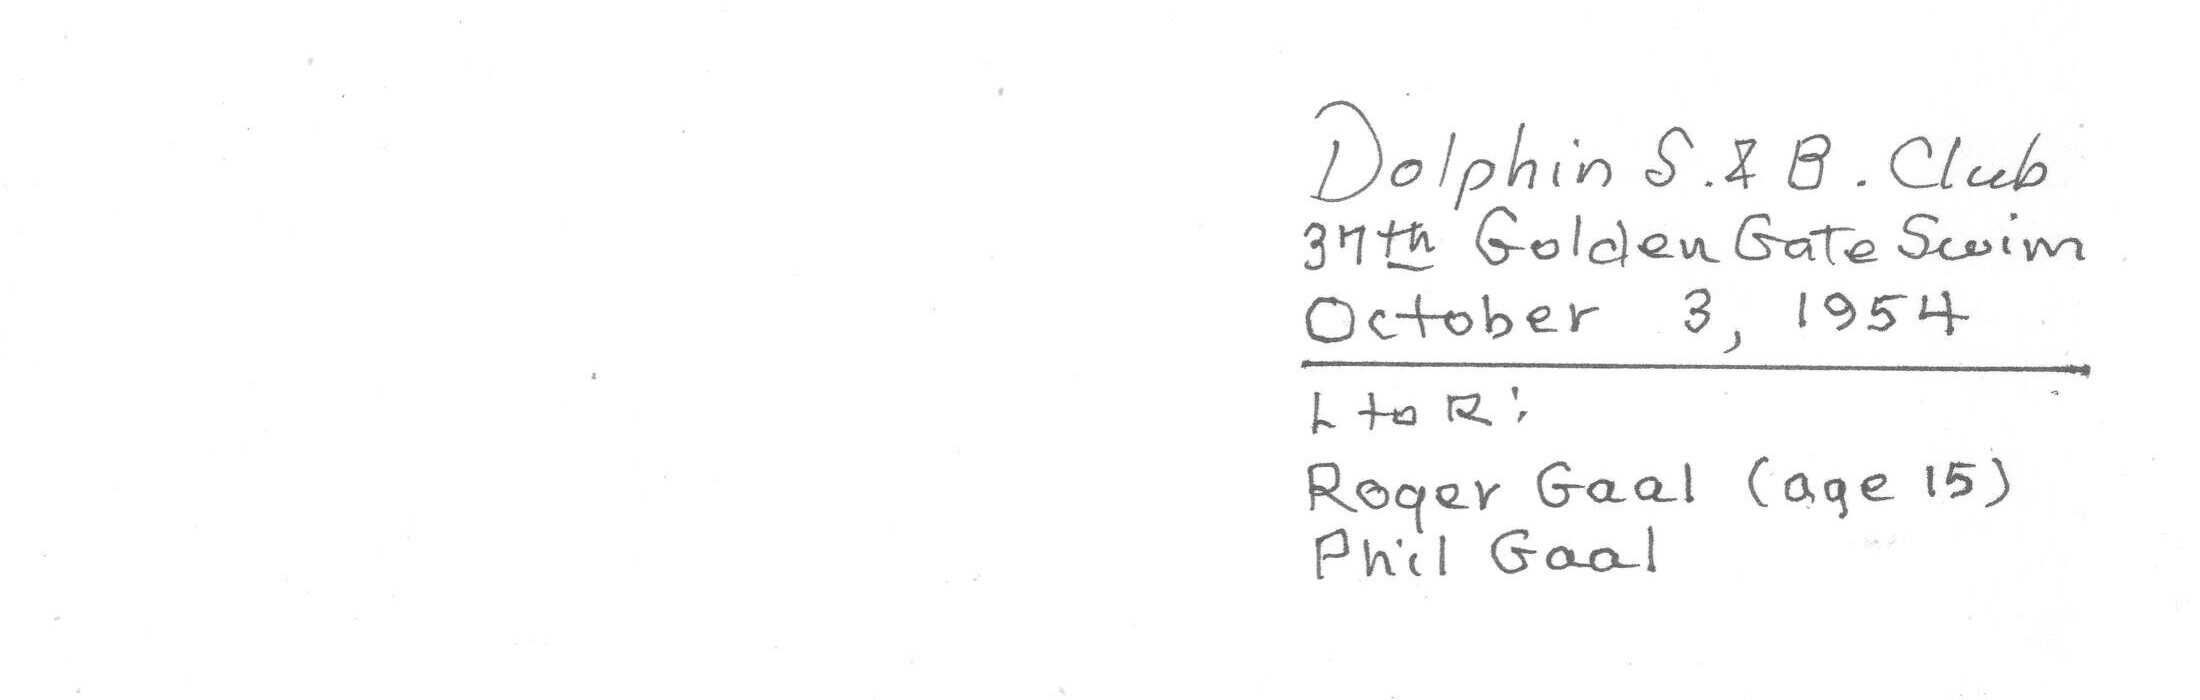 Dolphin S. & B. Club
37th Golden Gate Swim
October 3, 1954
L to R:
Roger Gaal (age 15)
Phil Gaal